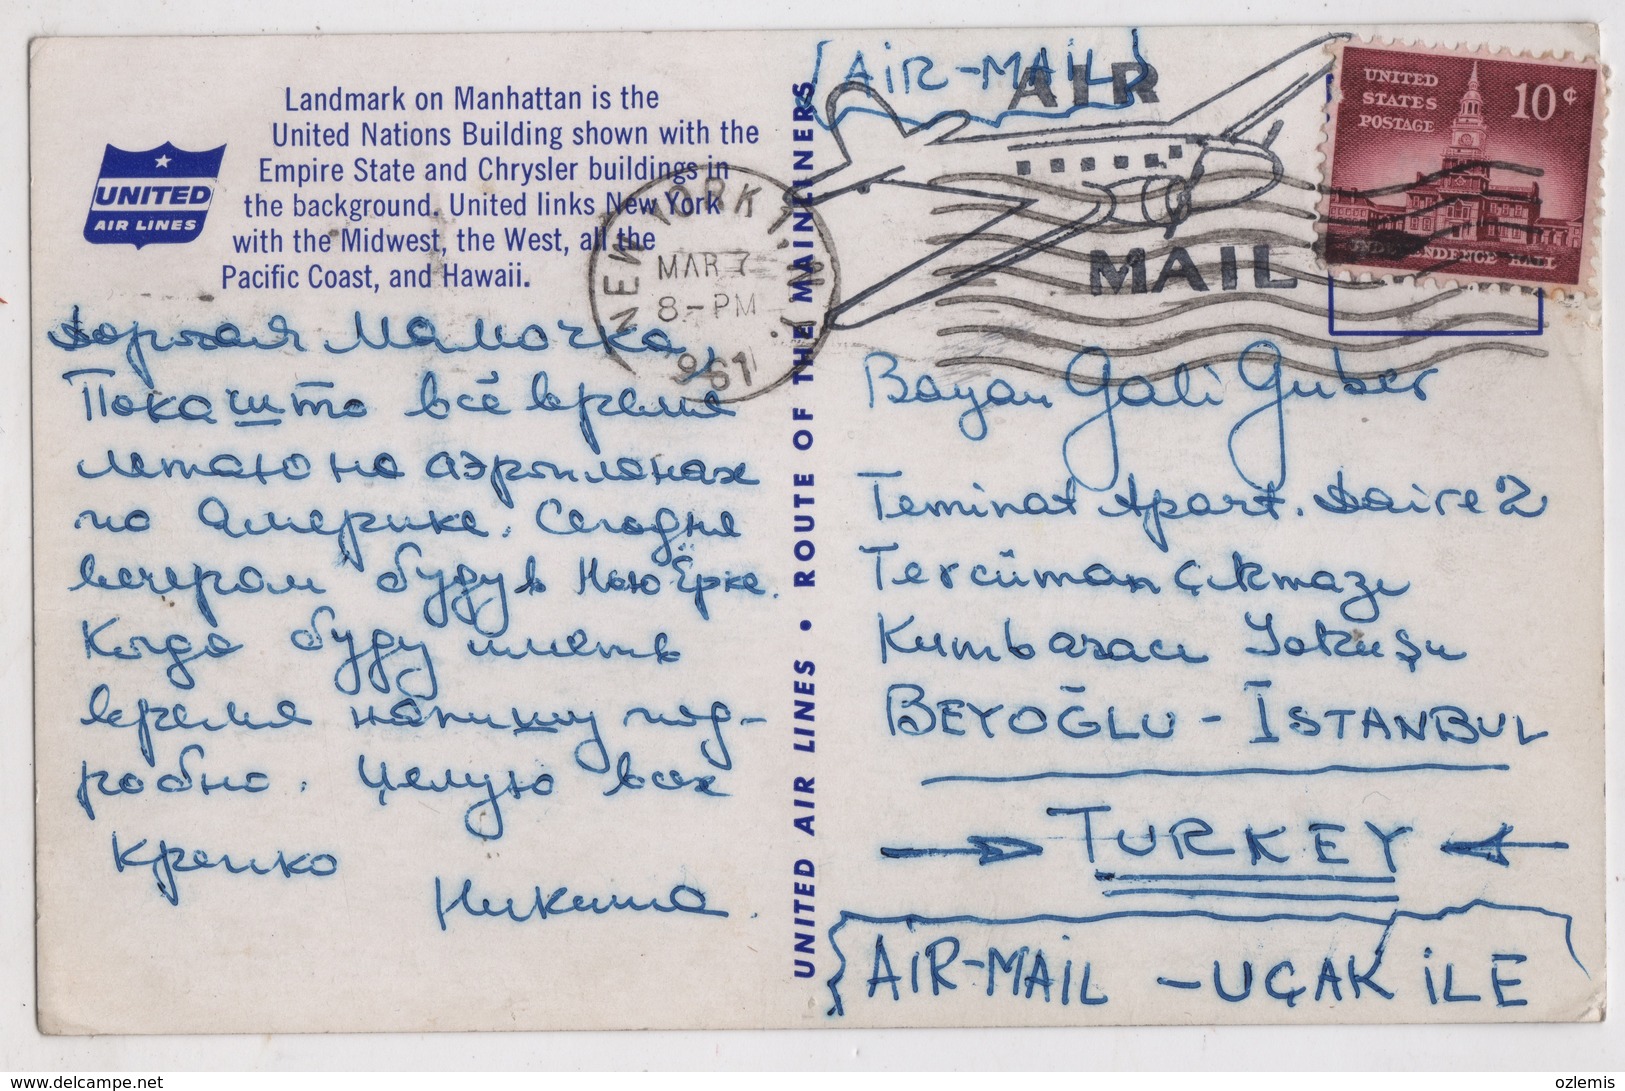 Landmark on Manhattan is the
United Nations Building shown with the
Empire State and Chrysler buildings in
the background. United links New York
with the Midwest, the West, all the
Pacific Coast, and Hawaii.
UNITED
AIR LINES
Дорогая Мамочка,
Покашто всё время
летаю на аэропланах
по Америке. Сегодня
вечером буду в Нью Ёрке.
Когда буду иметь
время напишу под-
робно. Целую всех
крепко
Никита.
UNITED AIR LINES • ROUTE OF THE MAINLINERS
NEW YORK 1, N.Y.
MAR 7
8-PM
1961
AIR-MAIL
AIR
MAIL
UNITED
STATES
POSTAGE
10¢
INDEPENDENCE HALL
Bayan Gali Guber
Teminat Apart. Daire 2
Tercüman Çıkmazı
Kumbaracı Yokuşu
BEYOĞLU - İSTANBUL
TURKEY
AİR-MAIL - UÇAK İLE
ozlemis